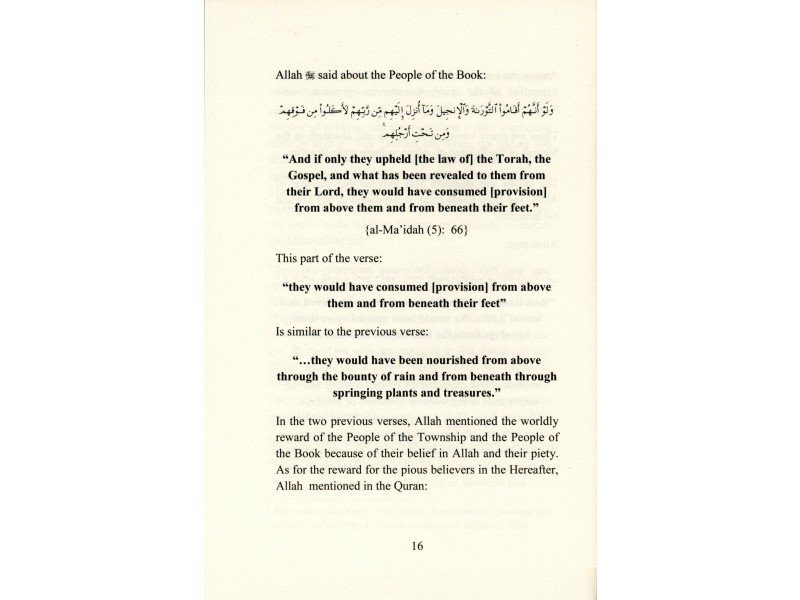 Allah ﷻ said about the People of the Book:
وَلَوْ أَنَّهُمْ أَقَامُوا۟ ٱلتَّوْرَىٰةَ وَٱلْإِنجِيلَ وَمَآ أُنزِلَ إِلَيْهِم مِّن رَّبِّهِمْ لَأَكَلُوا۟ مِن فَوْقِهِمْ
وَمِن تَحْتِ أَرْجُلِهِم ۚ
“And if only they upheld [the law of] the Torah, the
Gospel, and what has been revealed to them from
their Lord, they would have consumed [provision]
from above them and from beneath their feet.”
{al-Ma’idah (5): 66}
This part of the verse:
“they would have consumed [provision] from above
them and from beneath their feet”
Is similar to the previous verse:
“…they would have been nourished from above
through the bounty of rain and from beneath through
springing plants and treasures.”
In the two previous verses, Allah mentioned the worldly
reward of the People of the Township and the People of
the Book because of their belief in Allah and their piety.
As for the reward for the pious believers in the Hereafter,
Allah mentioned in the Quran:
16